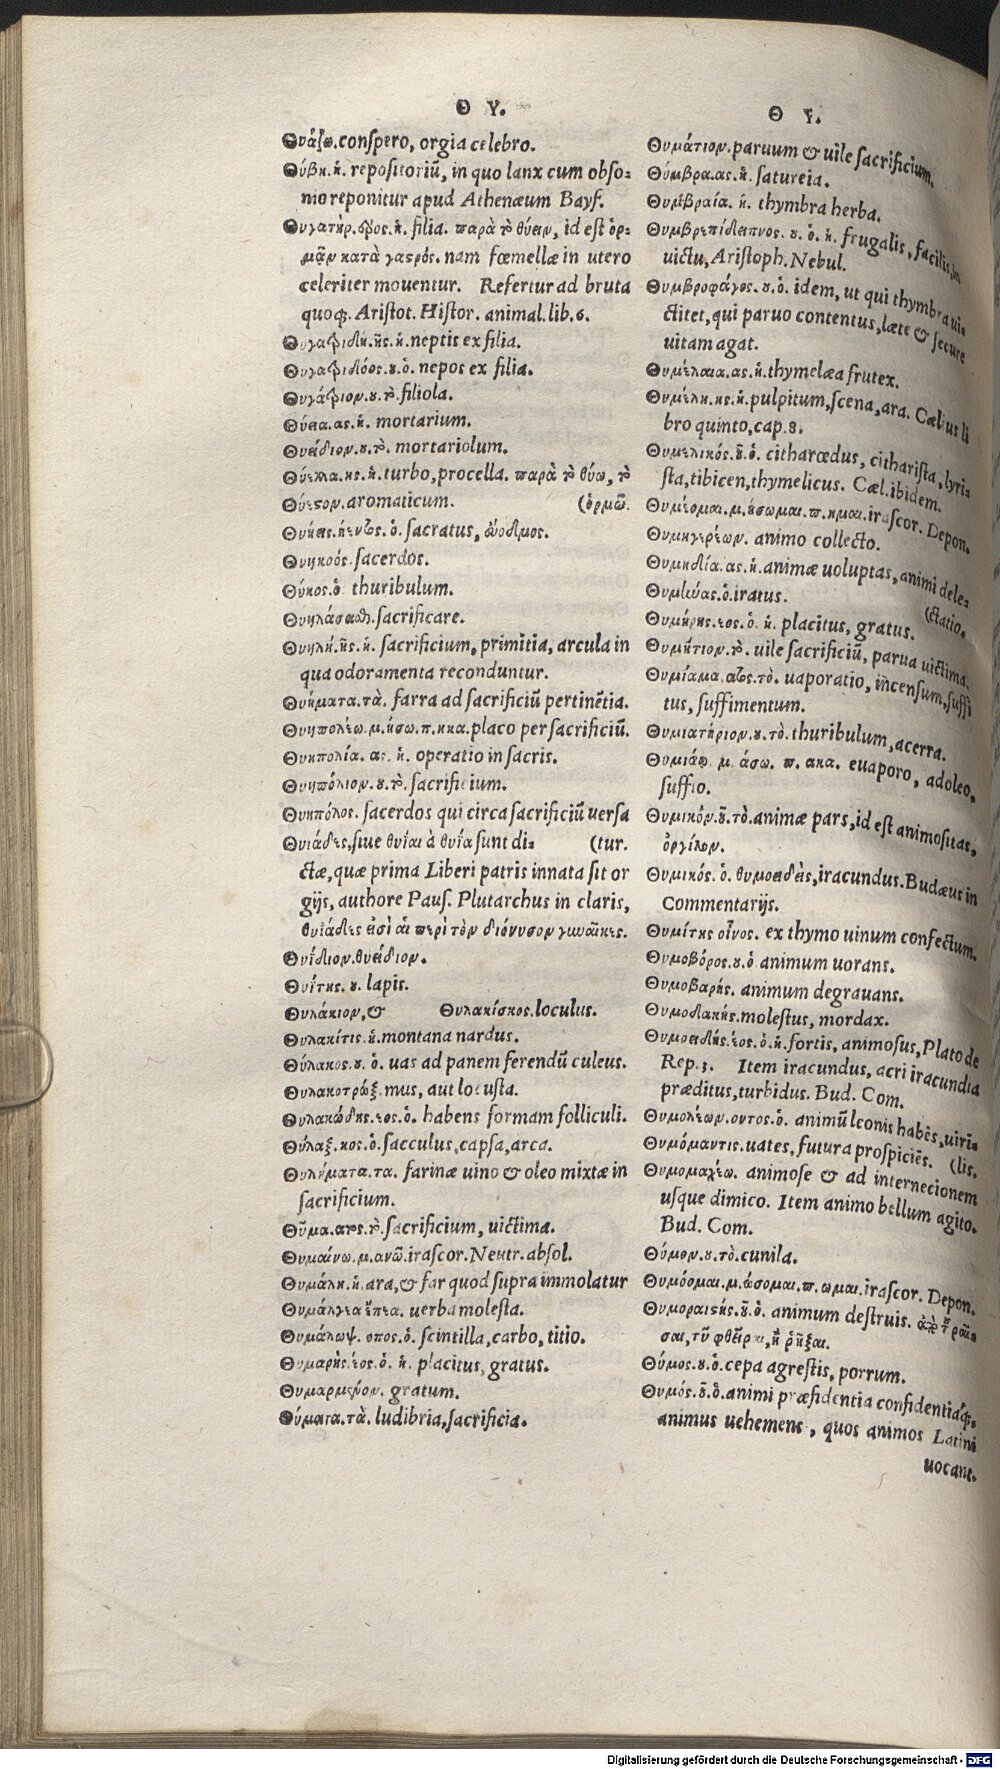 Θ Υ.
Θυάζω. conſpero, orgia celebro.
Θύβη. ἡ. repoſitoriũ, in quo lanx cum obſo⸗
nio reponitur apud Athenæum Bayf.
Θυγατήρ. τρος. ἡ. filia. παρὰ τὸ θύειν, id eſt ὁρ⸗
μᾶν κατὰ γαστρός. nam fœmellæ in utero
celeriter mouentur. Refertur ad bruta
quoq;. Ariſtot. Hiſtor. animal. lib. 6.
Θυγατριδῆ. ῆς. ἡ. neptis ex filia.
Θυγατριδόος. ου. ὁ. nepos ex filia.
Θυγάτριον. ου. τὸ. filiola.
Θύεια. ας. ἡ. mortarium.
Θυείδιον. ου. τὸ. mortariolum.
Θύελλα. ης. ἡ. turbo, procella. παρὰ τὸ θύω, τὸ
Θύεστον. aromaticum. (ὁρμῶ.
Θυήεις. ήεντος. ὁ. ſacratus, εὐοδμος.
Θυηκοός. ſacerdos.
Θύηκος. ὁ thuribulum.
Θυηλάσαθ. ſacrificare.
Θυηλή. ῆς. ἡ. ſacrificium, primitia, arcula in
qua odoramenta reconduntur.
Θυήματα. τὰ. farra ad ſacrificiũ pertinẽtia.
Θυηπολέω. μ. ήσω. π. ηκα. placo per ſacrificiũ.
Θυηπολία. ας. ἡ. operatio in ſacris.
Θυηπόλιον. ου. τὸ. ſacrificium.
Θυηπόλος. ſacerdos qui circa ſacrificiũ uerſa
Θυιάδες, ſiue θυῖαι à θυΐα ſunt di⸗ (tur.
ctæ, quæ prima Liberi patris innata ſit or
gijs, authore Pauſ. Plutarchus in claris,
θυϊάδες εἰσὶ αἱ περὶ τὸν διόνυσον γυναῖκες.
Θυΐδιον. θυείδιον.
Θυΐτης. ου. lapis.
Θυλάκιον, & Θυλακίσκος. loculus.
Θυλακίτις. ἡ. montana nardus.
Θύλακος. ου. ὁ. uas ad panem ferendũ culeus.
Θυλακοτρώξ. mus, aut locuſta.
Θυλακώδης. εος. ὁ. habens formam folliculi.
Θύλαξ. κος. ὁ. ſacculus, capſa, arca.
Θυλήματα. τα. farinæ uino & oleo mixtæ in
ſacrificium.
Θῦμα. ατος. τὸ. ſacrificium, uictima.
Θυμαίνω. μ. ανῶ. iraſcor. Neutr. abſol.
Θυμάλη. ἡ. ara, & far quod ſupra immolatur
Θυμάλγεα ἔπεα. uerba moleſta.
Θυμάλωψ. οπος. ὁ. ſcintilla, carbo, titio.
Θυμαρής. έος. ὁ. ἡ. placitus, gratus.
Θυμαρμενον. gratum.
Θύματα. τὰ. ludibria, ſacrificia.
Θ Υ.
Θυμάτιον. paruum & uile ſacrificium.
Θύμβρα. ας. ἡ. ſatureia.
Θυμβραία. ἡ. thymbra herba.
Θυμβρεπίδειπνος. ου. ὁ. ἡ. frugalis, facilis, in
uictu, Ariſtoph. Nebul.
Θυμβροφάγος. ου. ὁ. idem, ut qui thymbra ui⸗
ctitet, qui paruo contentus, læte & ſecure
uitam agat.
Θυμέλαια. ας. ἡ. thymelæa frutex.
Θυμέλη. ης. ἡ. pulpitum, ſcena, ara. Cælius li
bro quinto, cap. 8.
Θυμελικός. οῦ. ὁ. citharœdus, cithariſta, lyri⸗
ſta, tibicen, thymelicus. Cæl. ibidem.
Θυμέομαι. μ. ήσωμαι. π. ημαι. iraſcor. Depon.
Θυμηγερέων. animo collecto.
Θυμηδία. ας. ἡ. animæ uoluptas, animi dele⸗
Θυμήνας. ὁ. iratus. (ctatio.
Θυμήρης. εος. ὁ. ἡ. placitus, gratus.
Θυμήτιον. τὸ. uile ſacrificiũ, parua uictima.
Θυμίαμα. ατος. τὸ. uaporatio, incenſum, ſuffi
tus, ſuffimentum.
Θυμιατήριον. ου. τὸ. thuribulum, acerra.
Θυμιάω. μ. άσω. π. ακα. euaporo, adoleo,
ſuffio.
Θυμικόν. οῦ. τὸ. animæ pars, id eſt animoſitas,
ὀργίλον.
Θυμικός. ὁ. θυμοειδὲς, iracundus. Budæus in
Commentarijs.
Θυμίτης οἶνος. ex thymo uinum confectum.
Θυμοβόρος. ου. ὁ animum uorans.
Θυμοβαρής. animum degrauans.
Θυμοδακής. moleſtus, mordax.
Θυμοειδής. έος. ὁ. ἡ. fortis, animoſus, Plato de
Rep. 3. Item iracundus, acri iracundia
præditus, turbidus. Bud. Com.
Θυμολέων. οντος. ὁ. animũ leonis habẽs, uiri⸗
Θυμόμαντις. uates, futura proſpiciẽs. (lis.
Θυμομαχέω. animoſe & ad internecionem
uſque dimico. Item animo bellum agito.
Bud. Com.
Θύμον. ου. τὸ. cunila.
Θυμόομαι. μ. ώσομαι. π. ωμαι. iraſcor. Depon.
Θυμοραιστής. οῦ. ὁ. animum deſtruis. ἀπὸ τοῦ ῥαῖ⸗
σαι, τοῦ φθεῖραι, ἢ ῥῆξαι.
Θύμος. ου. ὁ. cepa agreſtis, porrum.
Θυμός. οῦ. ὁ. animi præfidentia confidentiaq́;.
animus uehemens, quos animos Latini
uocant.
Digitalisierung gefördert durch die Deutsche Forschungsgemeinschaft - DFG